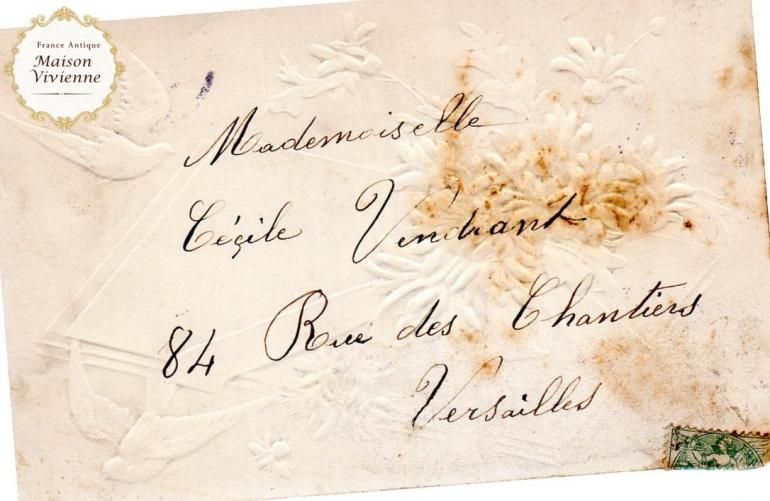 France Antique
Maison
Vivienne
Mademoiselle
Cécile Vendrant
84 Rue des Chantiers
Versailles